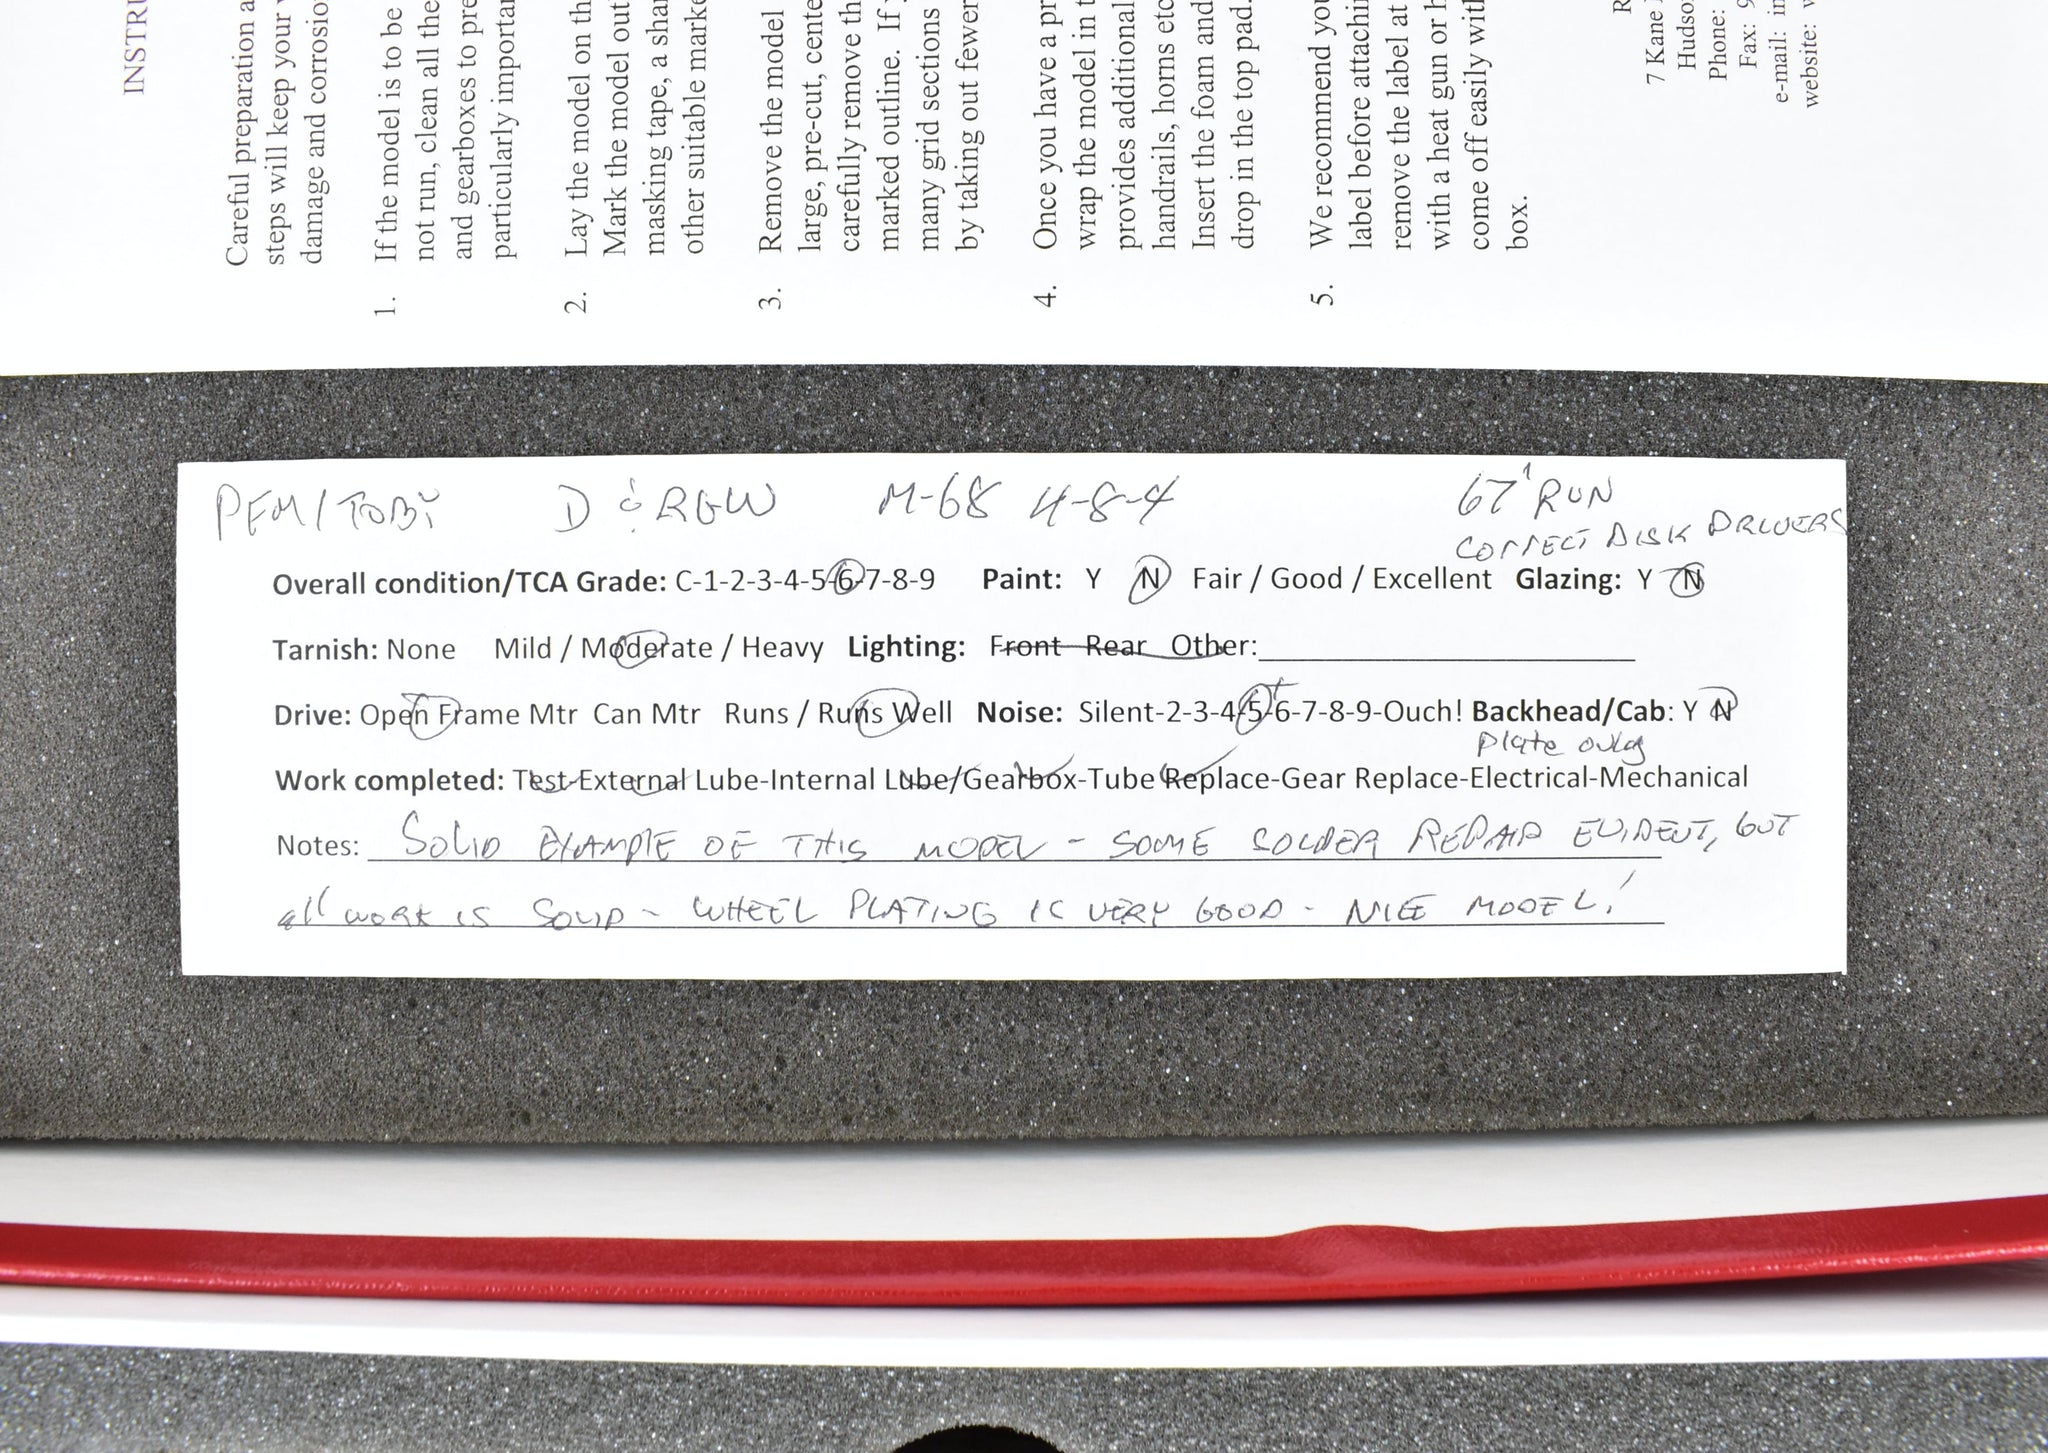 INSTRU
Careful preparation a
steps will keep your
damage and corrosion
1. If the model is to be
not run, clean all the
and gearboxes to pre
particularly importan
2. Lay the model on th
Mark the model out
masking tape, a shar
other suitable marke
3. Remove the model
large, pre-cut, cente
carefully remove th
marked outline. If y
many grid sections
by taking out fewer
4. Once you have a pr
wrap the model in t
provides additional
handrails, horns etc
Insert the foam and
drop in the top pad.
5. We recommend you
label before attachin
remove the label at
with a heat gun or h
come off easily with
box.
R
7 Kane
Hudso
Phone:
Fax: 9
e-mail: in
website: w
PFM/TOBY D & RGW M-68 4-8-4 67' RUN
CORRECT DISK DRIVERS
Overall condition/TCA Grade: C-1-2-3-4-5-6-7-8-9 Paint: Y N Fair / Good / Excellent Glazing: Y N
Tarnish: None Mild / Moderate / Heavy Lighting: Front Rear Other:
Drive: Open Frame Mtr Can Mtr Runs / Runs Well Noise: Silent-2-3-4-5+6-7-8-9-Ouch! Backhead/Cab: Y N
Plate only
Work completed: Test-External Lube-Internal Lube/Gearbox-Tube Replace-Gear Replace-Electrical-Mechanical
Notes: SOLID EXAMPLE OF THIS MODEL - SOME SOLDER REPAIR EVIDENT, BUT
all WORK IS SOLID - WHEEL PLATING IS VERY GOOD - NICE MODEL!